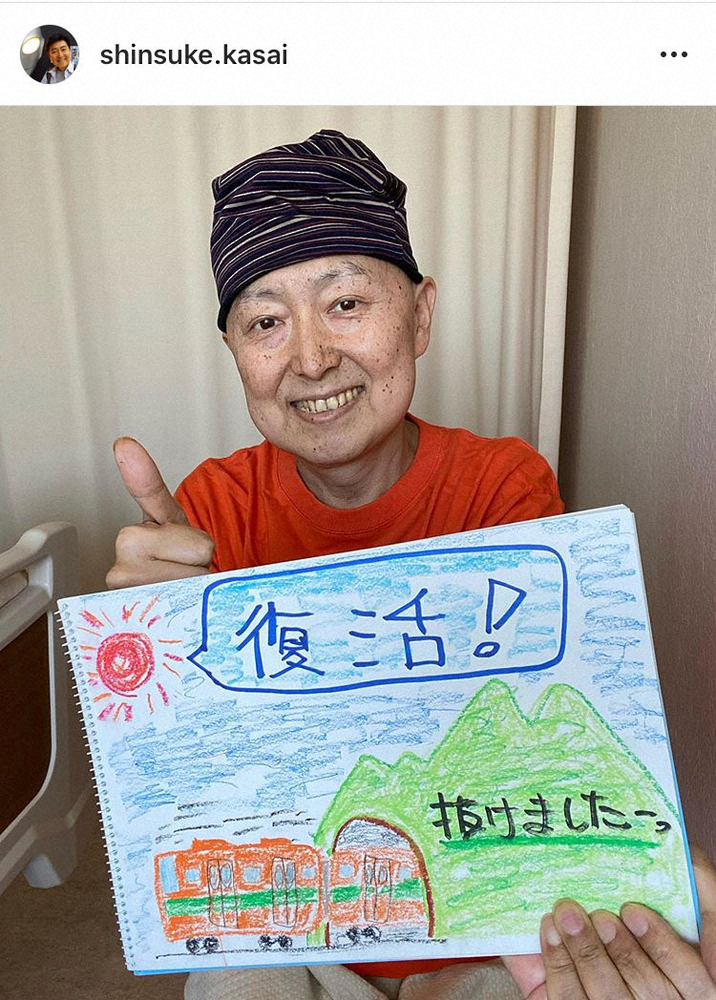 shinsuke.kasai
復活!
抜けましたーっ